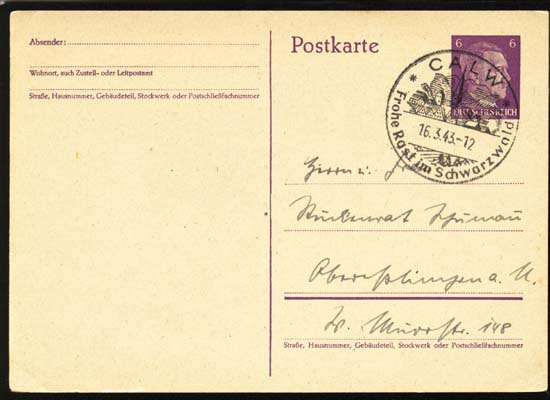 Absender:
Wohnort, auch Zustell- oder Leitpostamt
Straße, Hausnummer, Gebäudeteil, Stockwerk oder Postschließfachnummer
Postkarte
6 6
DEUTSCHES REICH
* CALW *
16.3.43.-12
Frohe Rast im Schwarzwald
Herrn u.
Studienrat
Oberesslingen a. N.
148
Straße, Hausnummer, Gebäudeteil, Stockwerk oder Postschließfachnummer